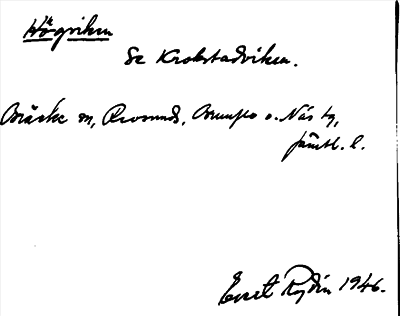 Högviken
Se Krokstadviken.
Bräcke sn, Revsunds, Brunflo o. Näs tg,
Jämtl. l.
Evert Rydin 1946.